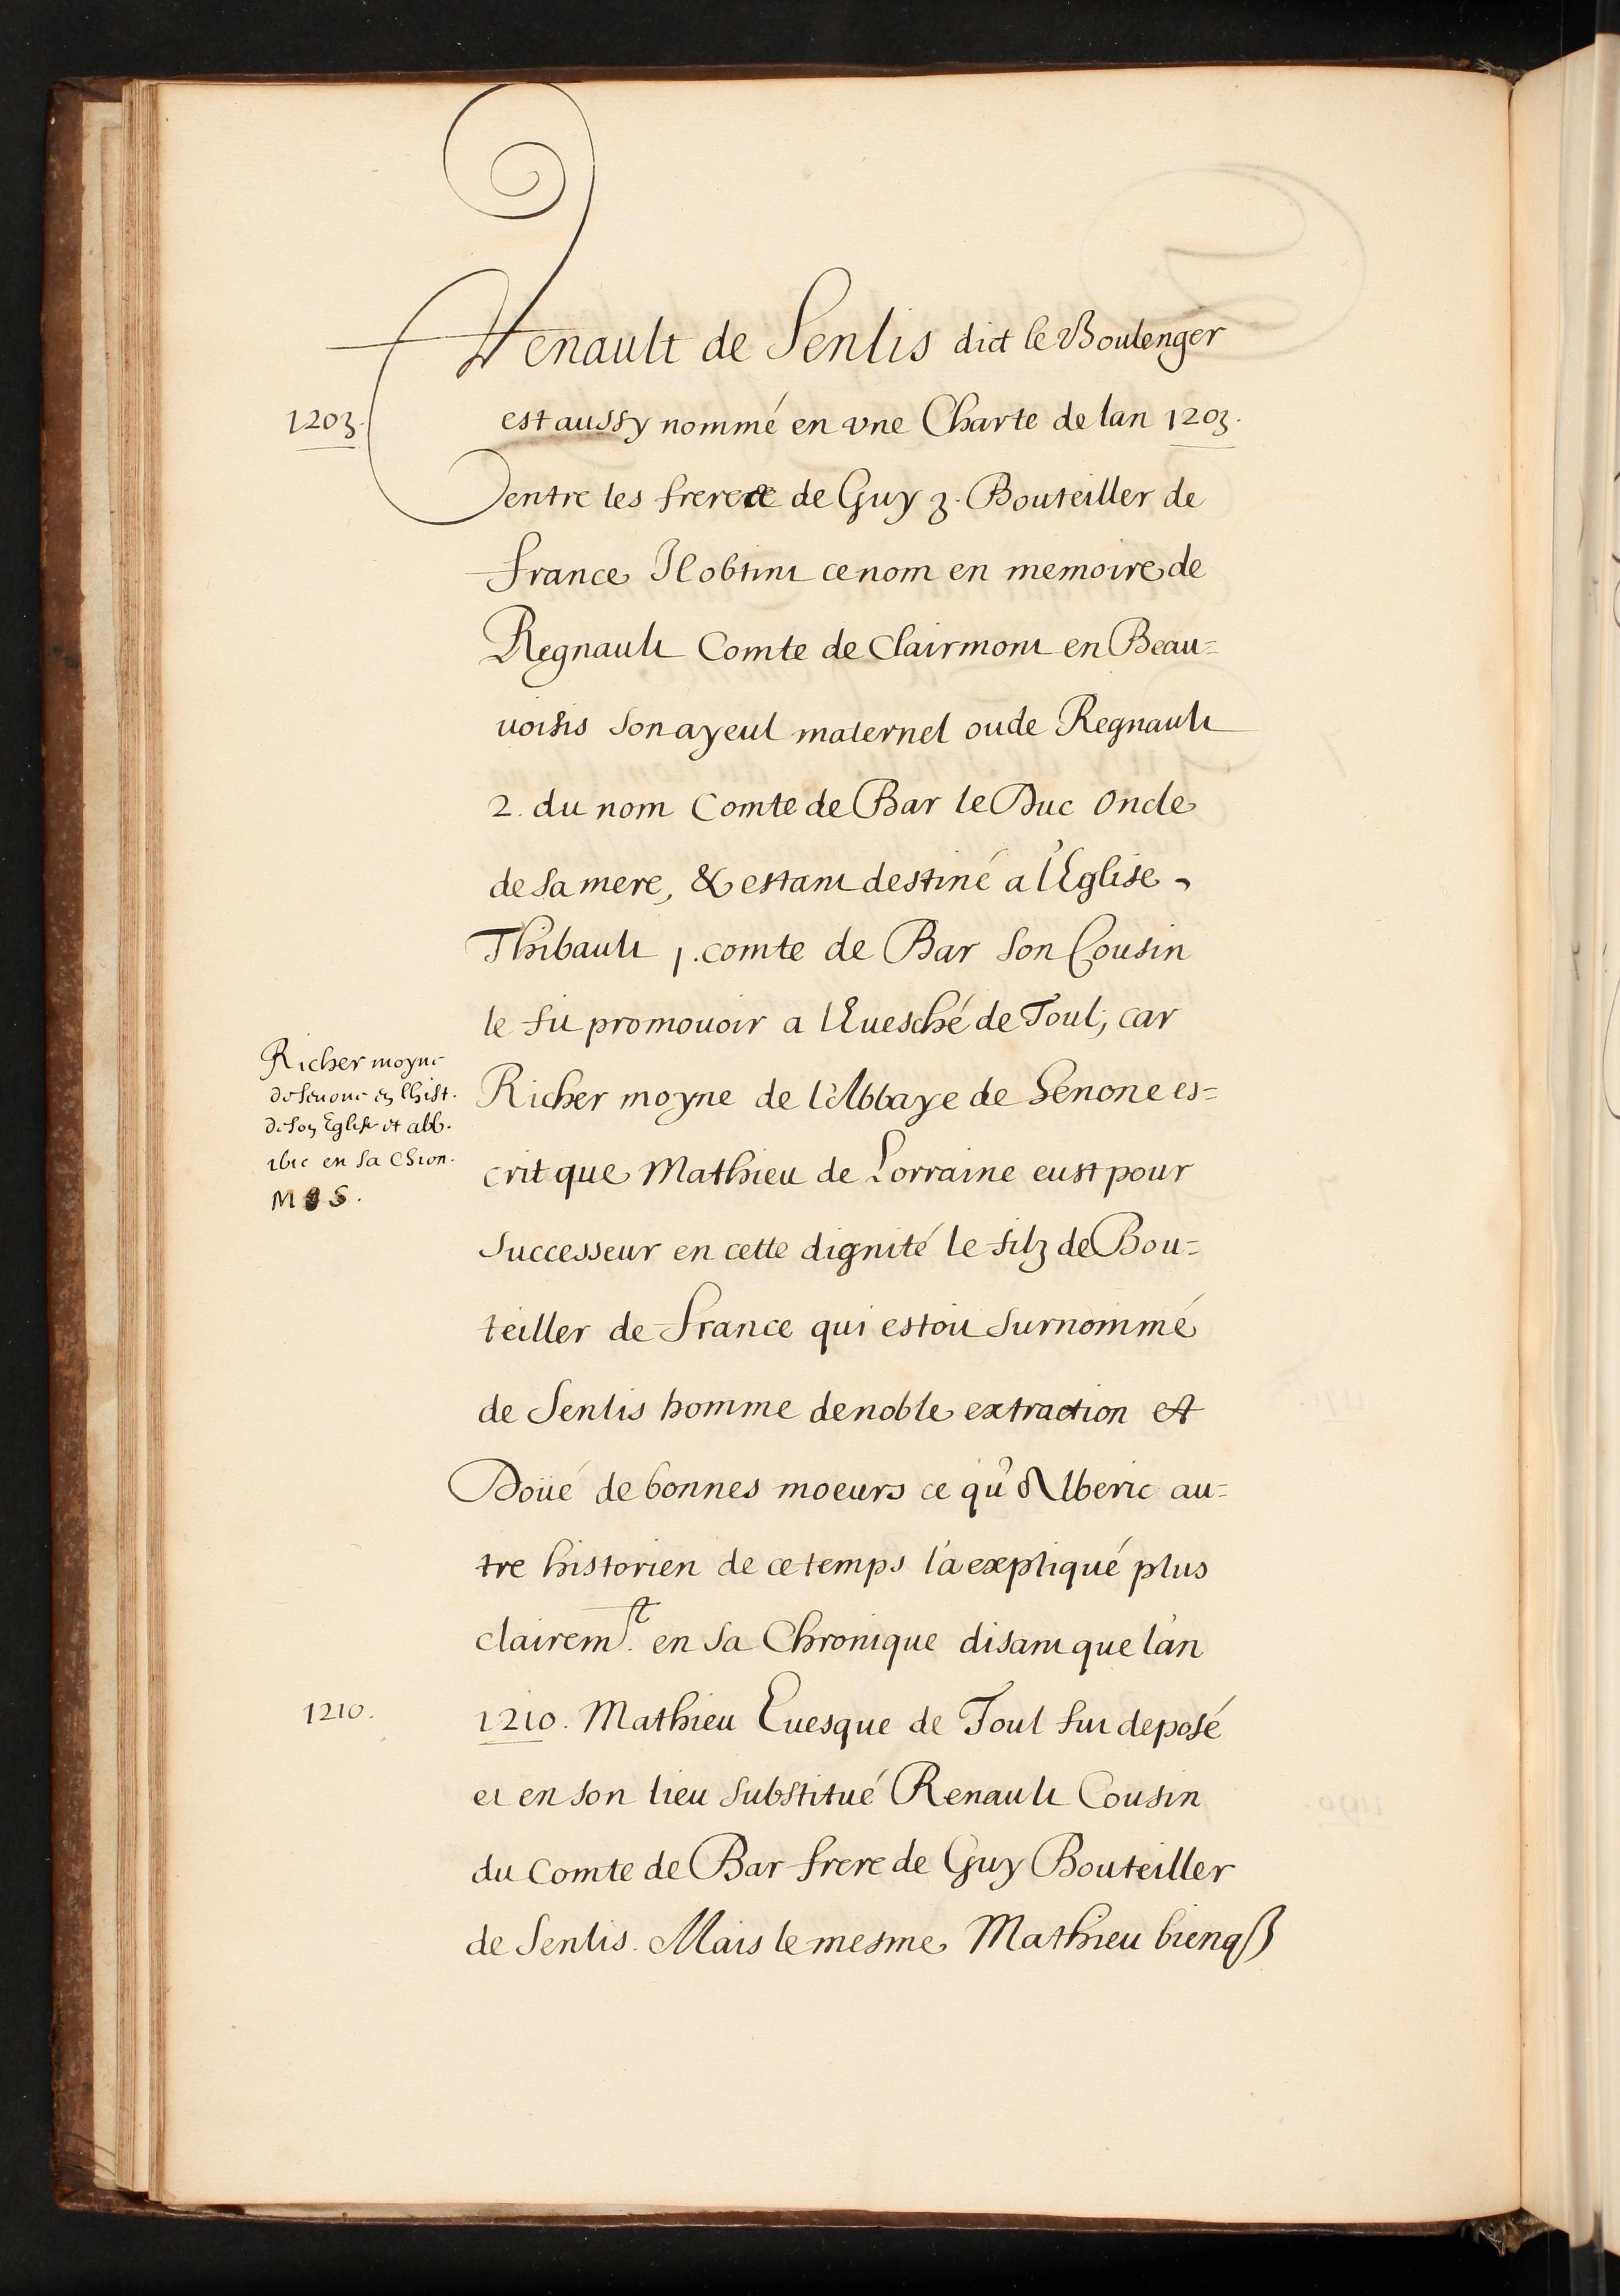 Renault de Senlis dict le Boulenger
1203.
est aussy nommé en vne Charte de lan 1203.
entre les freres de Guy 3. Bouteiller de
france Il obtint ce nom en memoire de
Regnault Comte de Clairmont en Beau=
uoisis son ayeul maternel ou de Regnault
2. du nom Comte de Bar le Duc Oncle
de sa mere, & estant destiné a l'Eglise
Thibault 1. comte de Bar son Cousin
le fit promouoir a lEuesché de Toul; car
Richer moyne
de senone en lhist.
de son Eglise et alb-
-eric en sa Chron.
MSS.
Richer moyne de l'Abbaye de Senone es=
crit que Mathieu de Lorraine eust pour
successeur en cette dignité le filz de Bou=
teiller de france qui estoit surnommé
de Senlis homme de noble extraction et
Doüé de bonnes moeurs ce qu'Alberic au=
tre historien de ce temps l'a expliqué plus
clairemt. en sa Chronique disant que l'an
1210.
1210. Mathieu Euesque de Toul fut deposé
et en son lieu substitué Renault Cousin
du Comte de Bar frere de Guy Bouteiller
de Senlis. Mais le mesme Mathieu bien